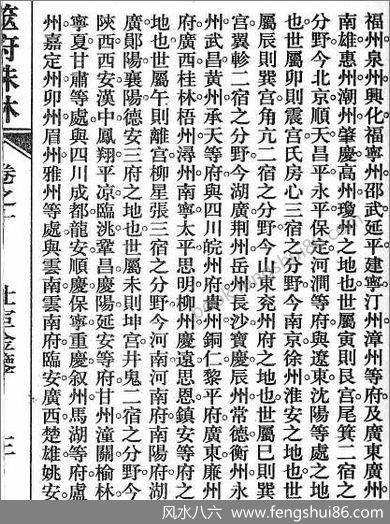 福州泉州興化福寧州邵武延平建寧汀州漳州等府及廣東廣州
南雄惠州潮州肇慶高州瓊州之地也世屬寅則艮宮尾箕二宿之
分野今北京順天昌平永平保定河澗等府與遼東沈陽等處之地
也世屬卯則震宮氐房心三宿之分野今南京徐州淮安之地也世
屬辰則巽宮角亢二宿之分野今山東兗州府之地也世屬巳則巽
宮翼軫二宿之分野今湖廣荆州岳州長沙寶慶辰州常德衡州永
州武昌黃州承天等府與四川皖州府貴州銅仁黎平府廣東廉州
府廣西桂林梧州潯州南寧太平思明柳州慶遠思恩鎮安等府之
地也世屬午則離宮柳星張三宿之分野今河南河南府南陽府湖
廣鄖陽襄陽德安三府之地也世屬未則坤宮井鬼二宿之分野今
陝西西安漢中鳳翔平凉臨洮鞏昌慶陽延安等府甘州潼關榆林
寧夏甘肅等處與四川成都龍安順慶保寧重慶叙州馬湖等府盧
州嘉定州卯州眉州雅州等處與雲南雲南府臨安廣西楚雄姚安
筮府珠林 卷之
风水八六 - www.fengshui86.com